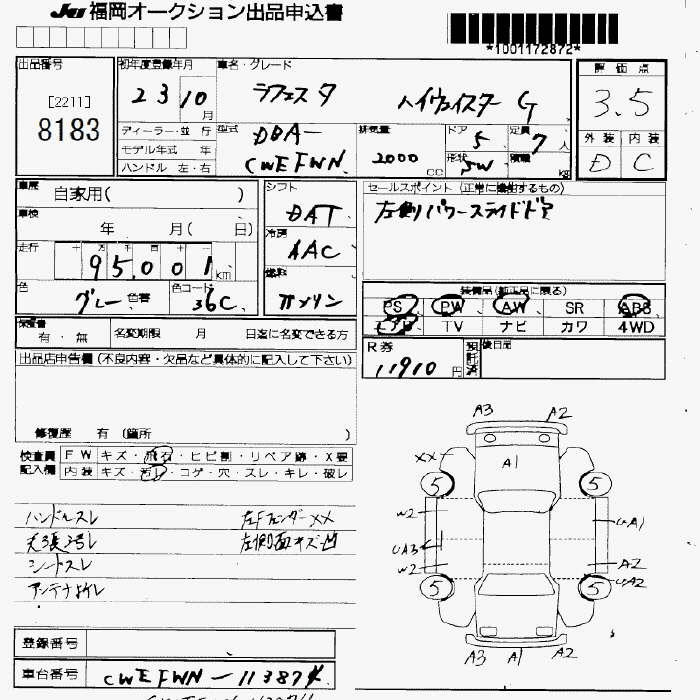 JU 福岡オークション出品申込書
*1001172872*
出品番号 [2211] 8183
初年度登録年月 23 10 月
車名・グレード ラフェスタ ハイウェイスター G
評価点 3.5
外装 内装
D C
ディーラー・並行
モデル年式 年
ハンドル 左・右
型式 DBA-CWEFWN
排気量 2000 CC
ドア 5
形状 SW
定員 7 人
積載 kg
車歴 自家用( )
車検 年 月( 日)
走行 十 万 千 百 十 一 95,001 km
色 グレー 色替 色コード 36C
シフト DAT
冷房 AAC
燃料 ガソリン
セールスポイント (正常に機能するもの)
左側パワースライドドア
装備品(純正品に限る)
PS PW AW SR ABS
エアB TV ナビ カワ 4WD
保証書 有・無 名変期限 月 日迄に名変できる方
R券 11910 円 預託済 後日品
出品店申告欄(不良内容・欠品など具体的に記入して下さい)
修復歴 有 (箇所 )
検査員記入欄
FW キズ・飛石・ヒビ割・リペア跡・X要
内装 キズ・汚れ・コゲ・穴・スレ・キレ・破レ
ハンドルスレ 左FフェンダーXX
天張汚レ 左側面キズ凹
シートスレ
アンテナ折レ
A3 A2
XX A1
5 5
W2 UA1
UA3
W2 A2
5 5 UA2
A3 A1 A2
登録番号
車台番号 CWEFWN-113874